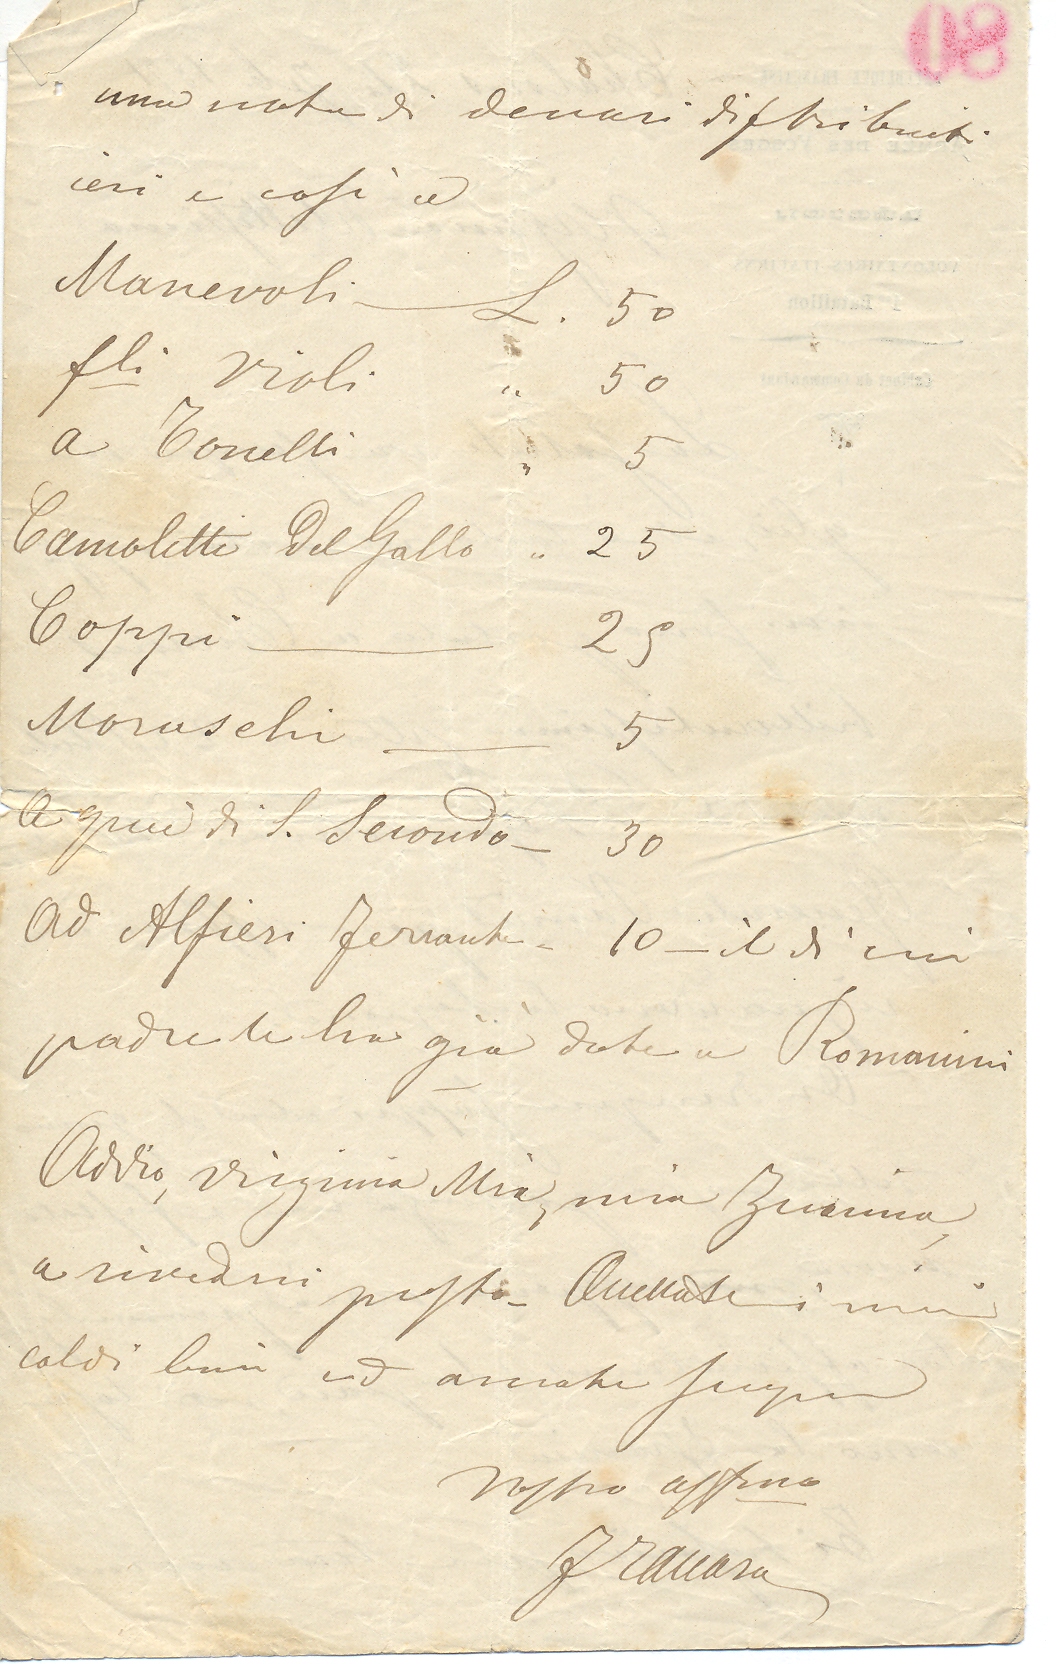 una nota di denari distribuiti
ieri e così a
Manevoli L. 50
f.lli Violi " 50
a Tonelli " 5
Camoletti Del Gallo " 25
Coppi 25
Moruschi 5
A quei di S. Secondo 30
Ad Alfieri Ferrante 10 — il di cui
padre le ha già date a Romanini
Addio, Virginia Mia, mia Zuanina,
a rivedrvi presto — i miei
caldi baci ed amate sempre
vostro affmo